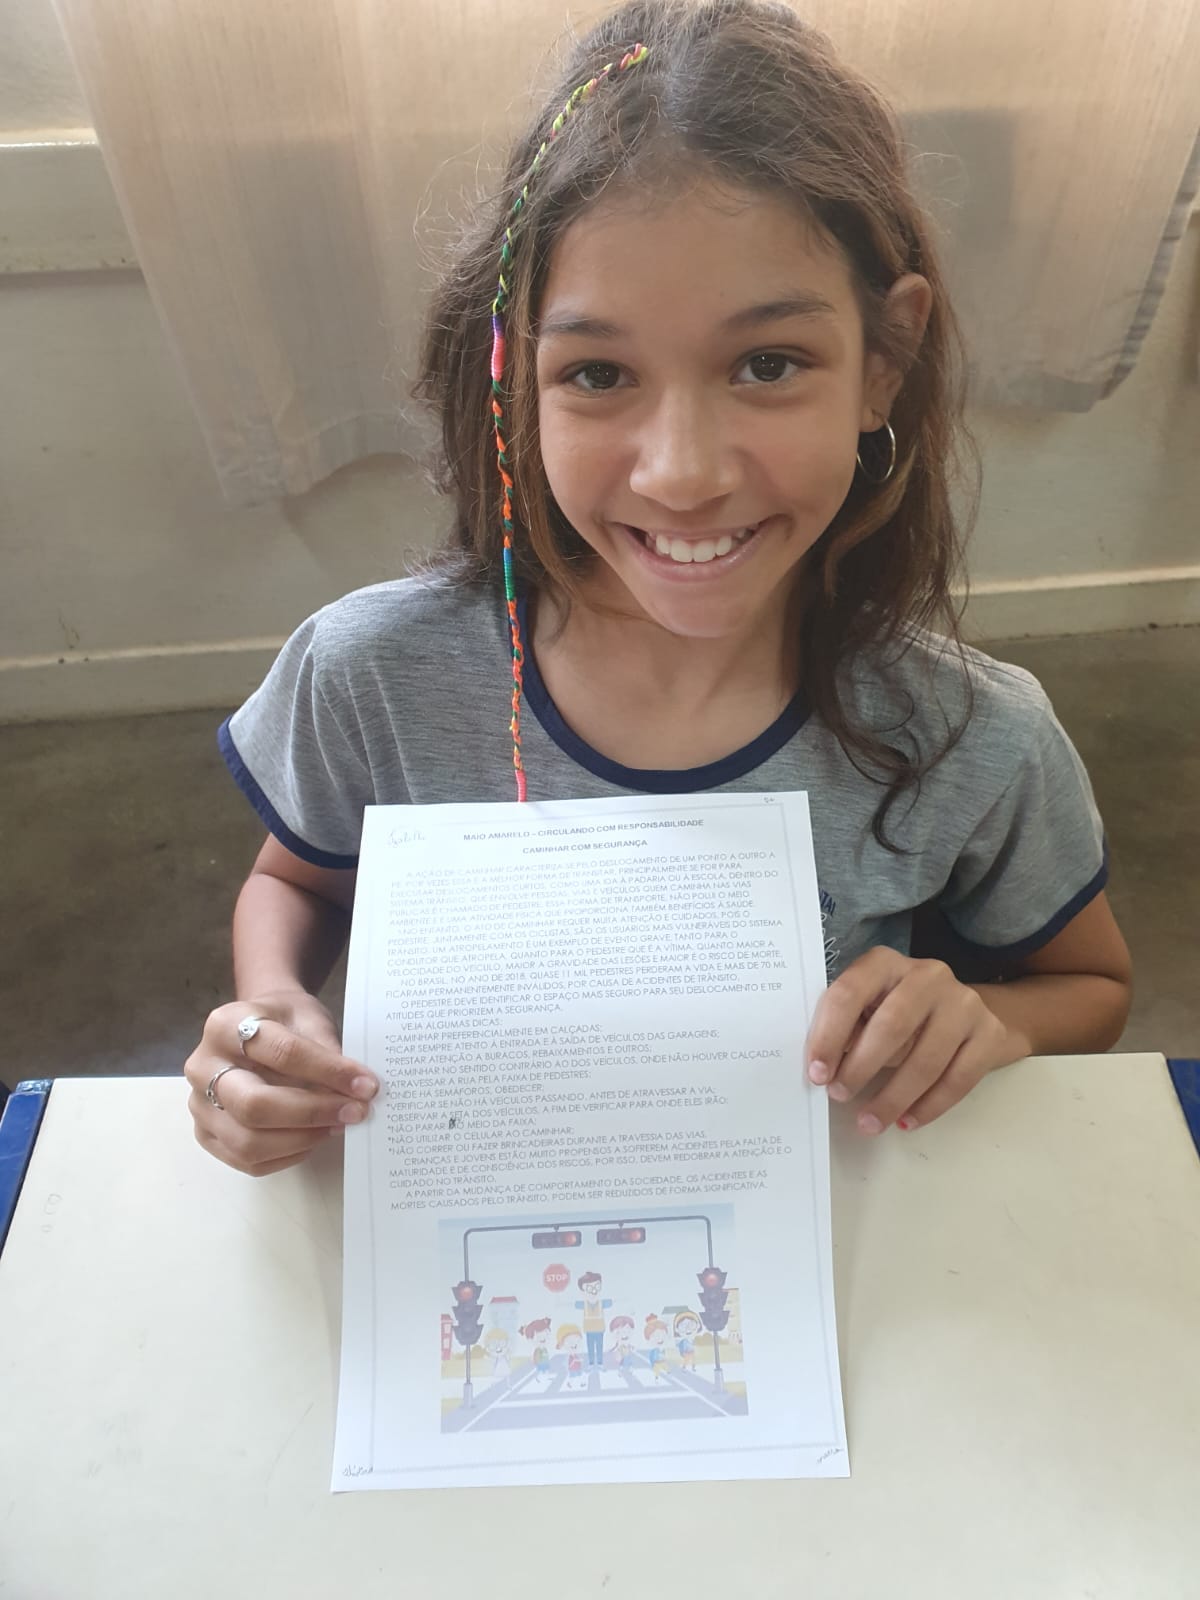 MAIO AMARELO – CIRCULANDO COM RESPONSABILIDADE
CAMINHAR COM SEGURANÇA
A AÇÃO DE CAMINHAR CARACTERIZA-SE PELO DESLOCAMENTO DE UM PONTO A OUTRO A
PÉ. POR VEZES ESSA É A MELHOR FORMA DE TRANSITAR, PRINCIPALMENTE SE FOR PARA
EXECUTAR DESLOCAMENTOS CURTOS, COMO UMA IDA À PADARIA OU À ESCOLA. DENTRO DO
SISTEMA TRÂNSITO, QUE ENVOLVE PESSOAS, VIAS E VEÍCULOS QUEM CAMINHA NAS VIAS
PÚBLICAS É CHAMADO DE PEDESTRE. ESSA FORMA DE TRANSPORTE, NÃO POLUI O MEIO
AMBIENTE E É UMA ATIVIDADE FÍSICA QUE PROPORCIONA TAMBÉM BENEFÍCIOS À SAÚDE.
NO ENTANTO, O ATO DE CAMINHAR REQUER MUITA ATENÇÃO E CUIDADOS, POIS O
PEDESTRE, JUNTAMENTE COM OS CICLISTAS, SÃO OS USUÁRIOS MAIS VULNERÁVEIS DO SISTEMA
TRÂNSITO. UM ATROPELAMENTO É UM EXEMPLO DE EVENTO GRAVE, TANTO PARA O
CONDUTOR QUE ATROPELA, QUANTO PARA O PEDESTRE QUE É A VÍTIMA. QUANTO MAIOR A
VELOCIDADE DO VEÍCULO, MAIOR A GRAVIDADE DAS LESÕES E MAIOR É O RISCO DE MORTE.
NO BRASIL, NO ANO DE 2018, QUASE 11 MIL PEDESTRES PERDERAM A VIDA E MAIS DE 70 MIL
FICARAM PERMANENTEMENTE INVÁLIDOS, POR CAUSA DE ACIDENTES DE TRÂNSITO.
O PEDESTRE DEVE IDENTIFICAR O ESPAÇO MAIS SEGURO PARA SEU DESLOCAMENTO E TER
ATITUDES QUE PRIORIZEM A SEGURANÇA.
VEJA ALGUMAS DICAS:
*CAMINHAR PREFERENCIALMENTE EM CALÇADAS;
*FICAR SEMPRE ATENTO À ENTRADA E À SAÍDA DE VEÍCULOS DAS GARAGENS;
*PRESTAR ATENÇÃO A BURACOS, REBAIXAMENTOS E OUTROS;
*CAMINHAR NO SENTIDO CONTRÁRIO AO DOS VEÍCULOS, ONDE NÃO HOUVER CALÇADAS;
*ATRAVESSAR A RUA PELA FAIXA DE PEDESTRES;
*ONDE HÁ SEMÁFOROS, OBEDECER;
*VERIFICAR SE NÃO HÁ VEÍCULOS PASSANDO, ANTES DE ATRAVESSAR A VIA;
*OBSERVAR A SETA DOS VEÍCULOS, A FIM DE VERIFICAR PARA ONDE ELES IRÃO;
*NÃO PARAR NO MEIO DA FAIXA;
*NÃO UTILIZAR O CELULAR AO CAMINHAR;
*NÃO CORRER OU FAZER BRINCADEIRAS DURANTE A TRAVESSIA DAS VIAS.
CRIANÇAS E JOVENS ESTÃO MUITO PROPENSOS A SOFREREM ACIDENTES PELA FALTA DE
MATURIDADE E DE CONSCIÊNCIA DOS RISCOS, POR ISSO, DEVEM REDOBRAR A ATENÇÃO E O
CUIDADO NO TRÂNSITO.
A PARTIR DA MUDANÇA DE COMPORTAMENTO DA SOCIEDADE, OS ACIDENTES E AS
MORTES CAUSADOS PELO TRÂNSITO, PODEM SER REDUZIDOS DE FORMA SIGNIFICATIVA.
STOP